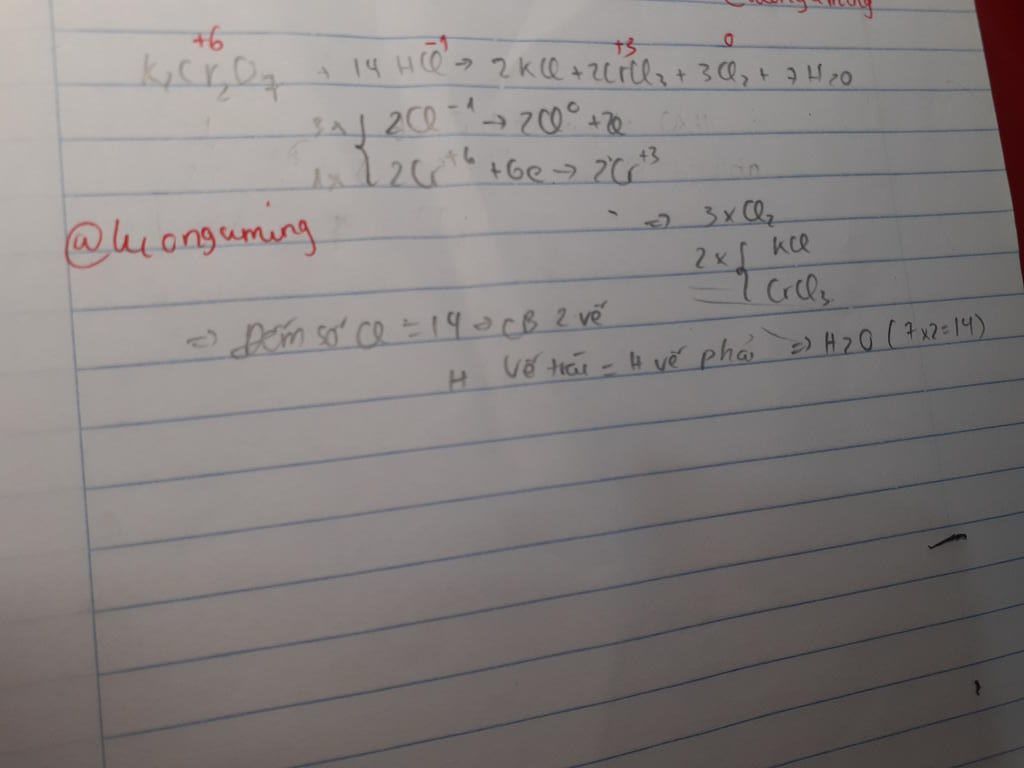 +6 -1 +3 0
K2Cr2O7 + 14 HCl → 2KCl + 2CrCl3 + 3Cl2 + 7H2O
3x { 2Cl⁻¹ → 2Cl⁰ + 2e
1x { 2Cr⁺⁶ + 6e → 2Cr⁺³
⇒ 3xCl2
@luonguming
2x { KCl
CrCl3
⇒ Đếm số Cl = 14 ⇒ CB 2 vế
H Vế trái = H vế phải ⇒ H2O (7x2=14)